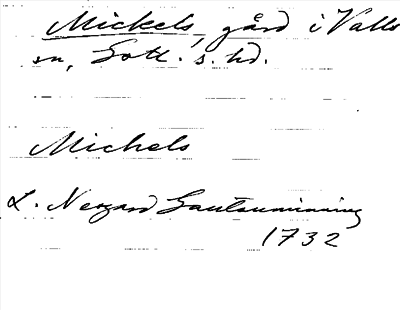 Mickels, gård i Valls
sn, Gotl. s. hd.
Michels
L. Nergård Gautauminning
1732